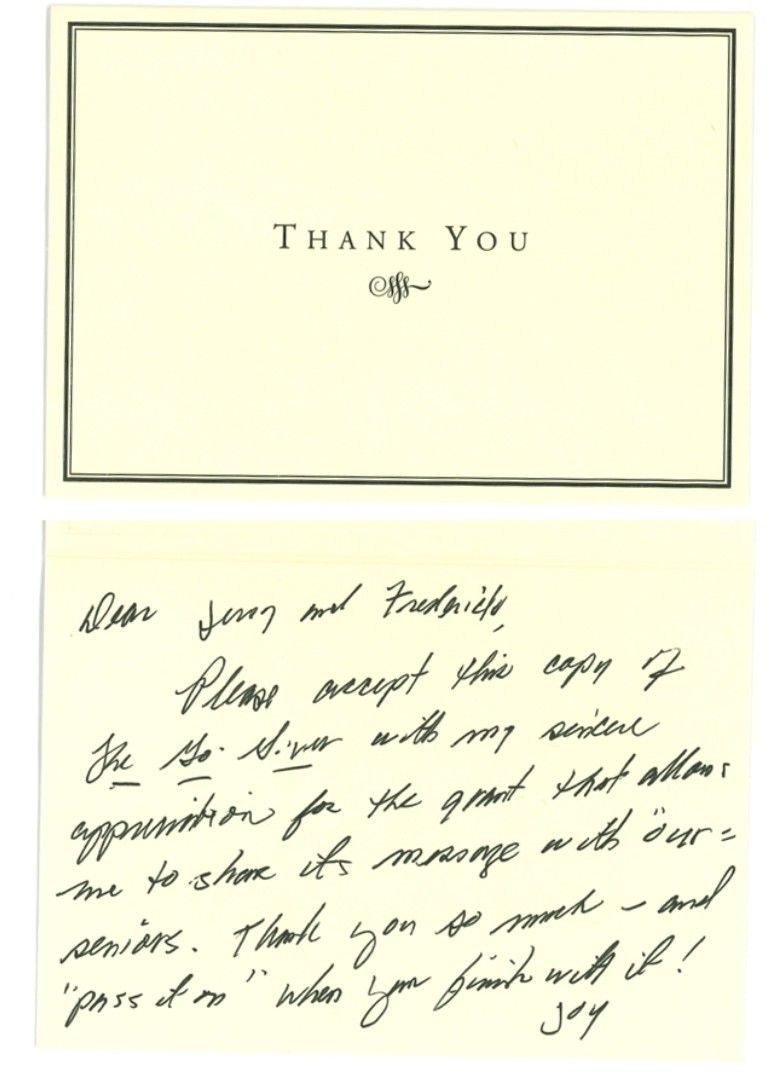 THANK YOU
Dear Jerry and Frederick,
Please accept this copy of
The Go-Giver with my sincere
appreciation for the grant that allows
me to share its message with "our"
seniors. Thank you so much – and
"pass it on" when you finish with it!
Joy